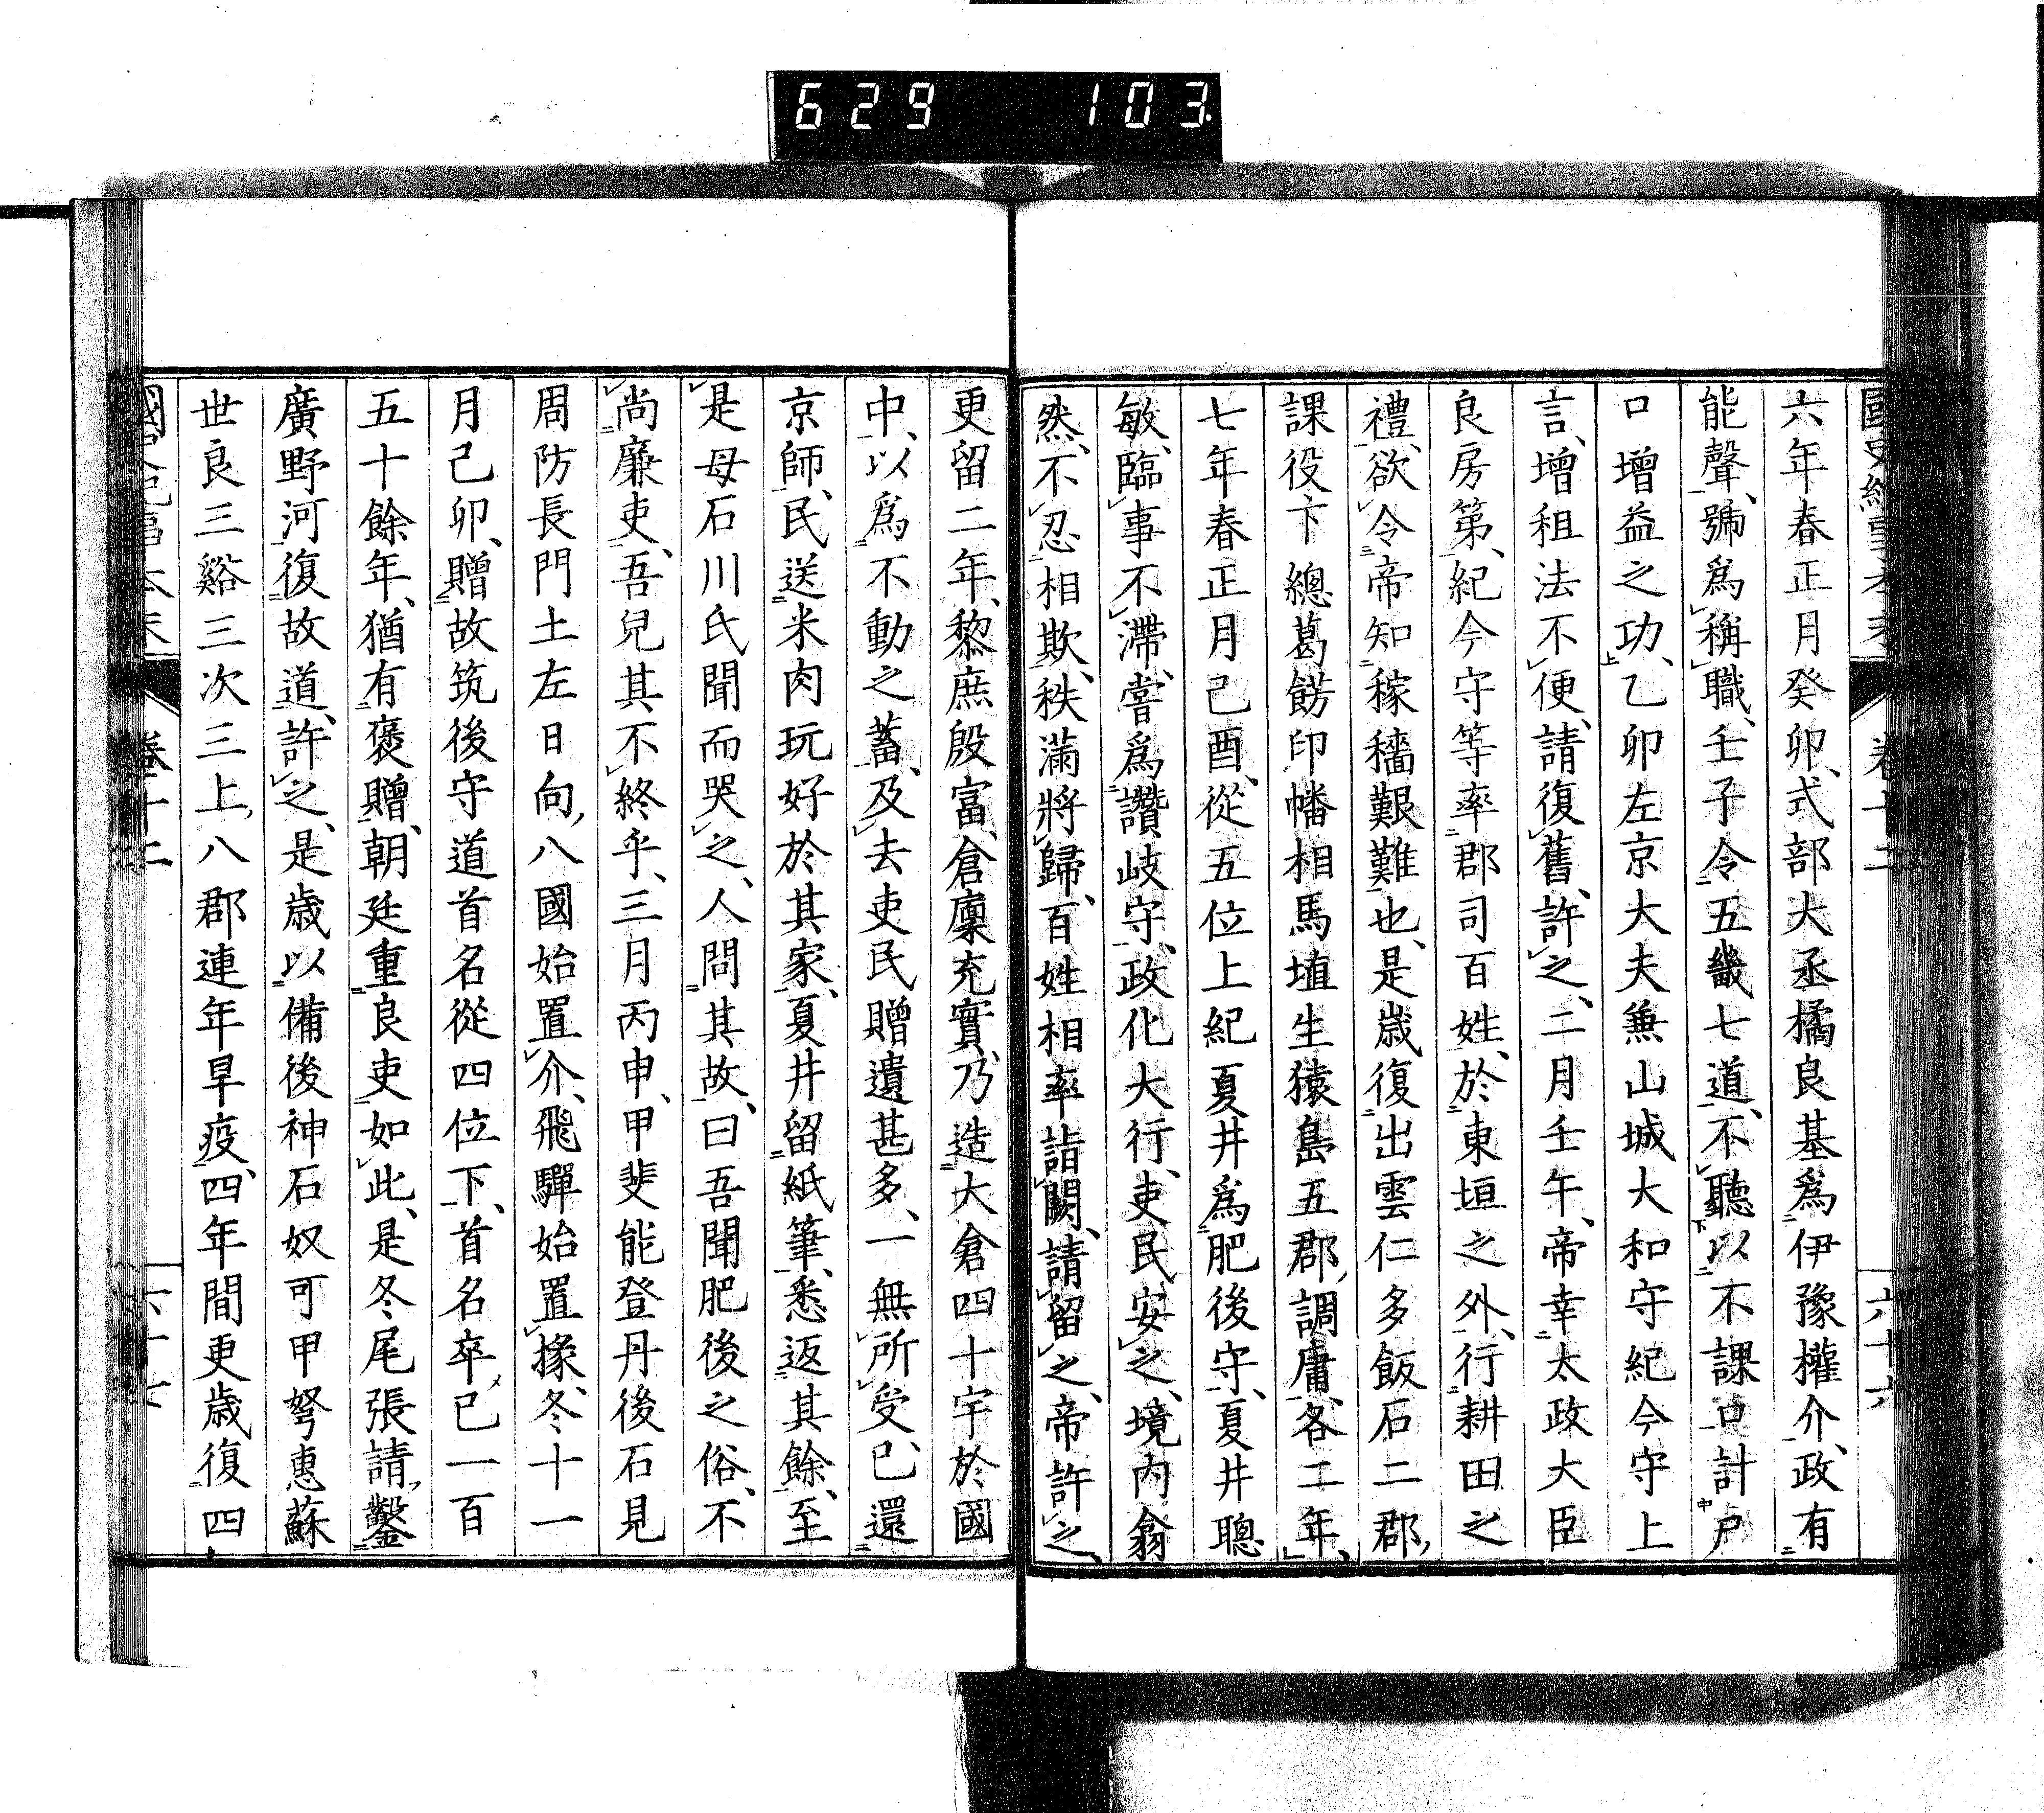 629 103
國史紀事本末 卷十二 六十六
六年春正月癸卯、式部大丞橘良基爲伊豫權介、政有
能聲、號爲稱職、壬子令五畿七道、不聽以不課口計戶
口增益之功、乙卯左京大夫兼山城大和守紀今守上
言、增租法不便、請復舊、許之、二月壬午、帝幸太政大臣
良房第、紀今守等率郡司百姓、於東垣之外、行耕田之
禮、欲令帝知稼穡艱難也、是歲復出雲仁多飯石二郡、
課役下總葛餝印幡相馬埴生猿島五郡、調庸、各二年、
七年春正月己酉、從五位上紀夏井爲肥後守、夏井聰
敏、臨事不滯、嘗爲讚岐守、政化大行、吏民安之、境內翕
然、不忍相欺、秩滿將歸、百姓相率詣闕、請留之、帝許之、
更留二年、黎庶殷富、倉廩充實、乃造大倉四十宇於國
中、以爲不動之蓄、及去吏民贈遺甚多、一無所受、已還
京師、民送米肉玩好於其家、夏井留紙筆、悉返其餘、至
是母石川氏聞而哭之、人問其故、曰吾聞肥後之俗、不
尚廉吏、吾兒其不終乎、三月丙申、甲斐能登丹後石見
周防長門土左日向、八國始置介、飛驒始置掾、冬十一
月己卯、贈故筑後守道首名從四位下、首名卒已一百
五十餘年、猶有褒贈、朝廷重良吏如此、是冬尾張請、鑿
廣野河復故道、許之、是歲以備後神石奴可甲弩惠蘇
世良三谿三次三上、八郡連年旱疫、四年間更歲復四
國史紀事本末 卷十二 六十七